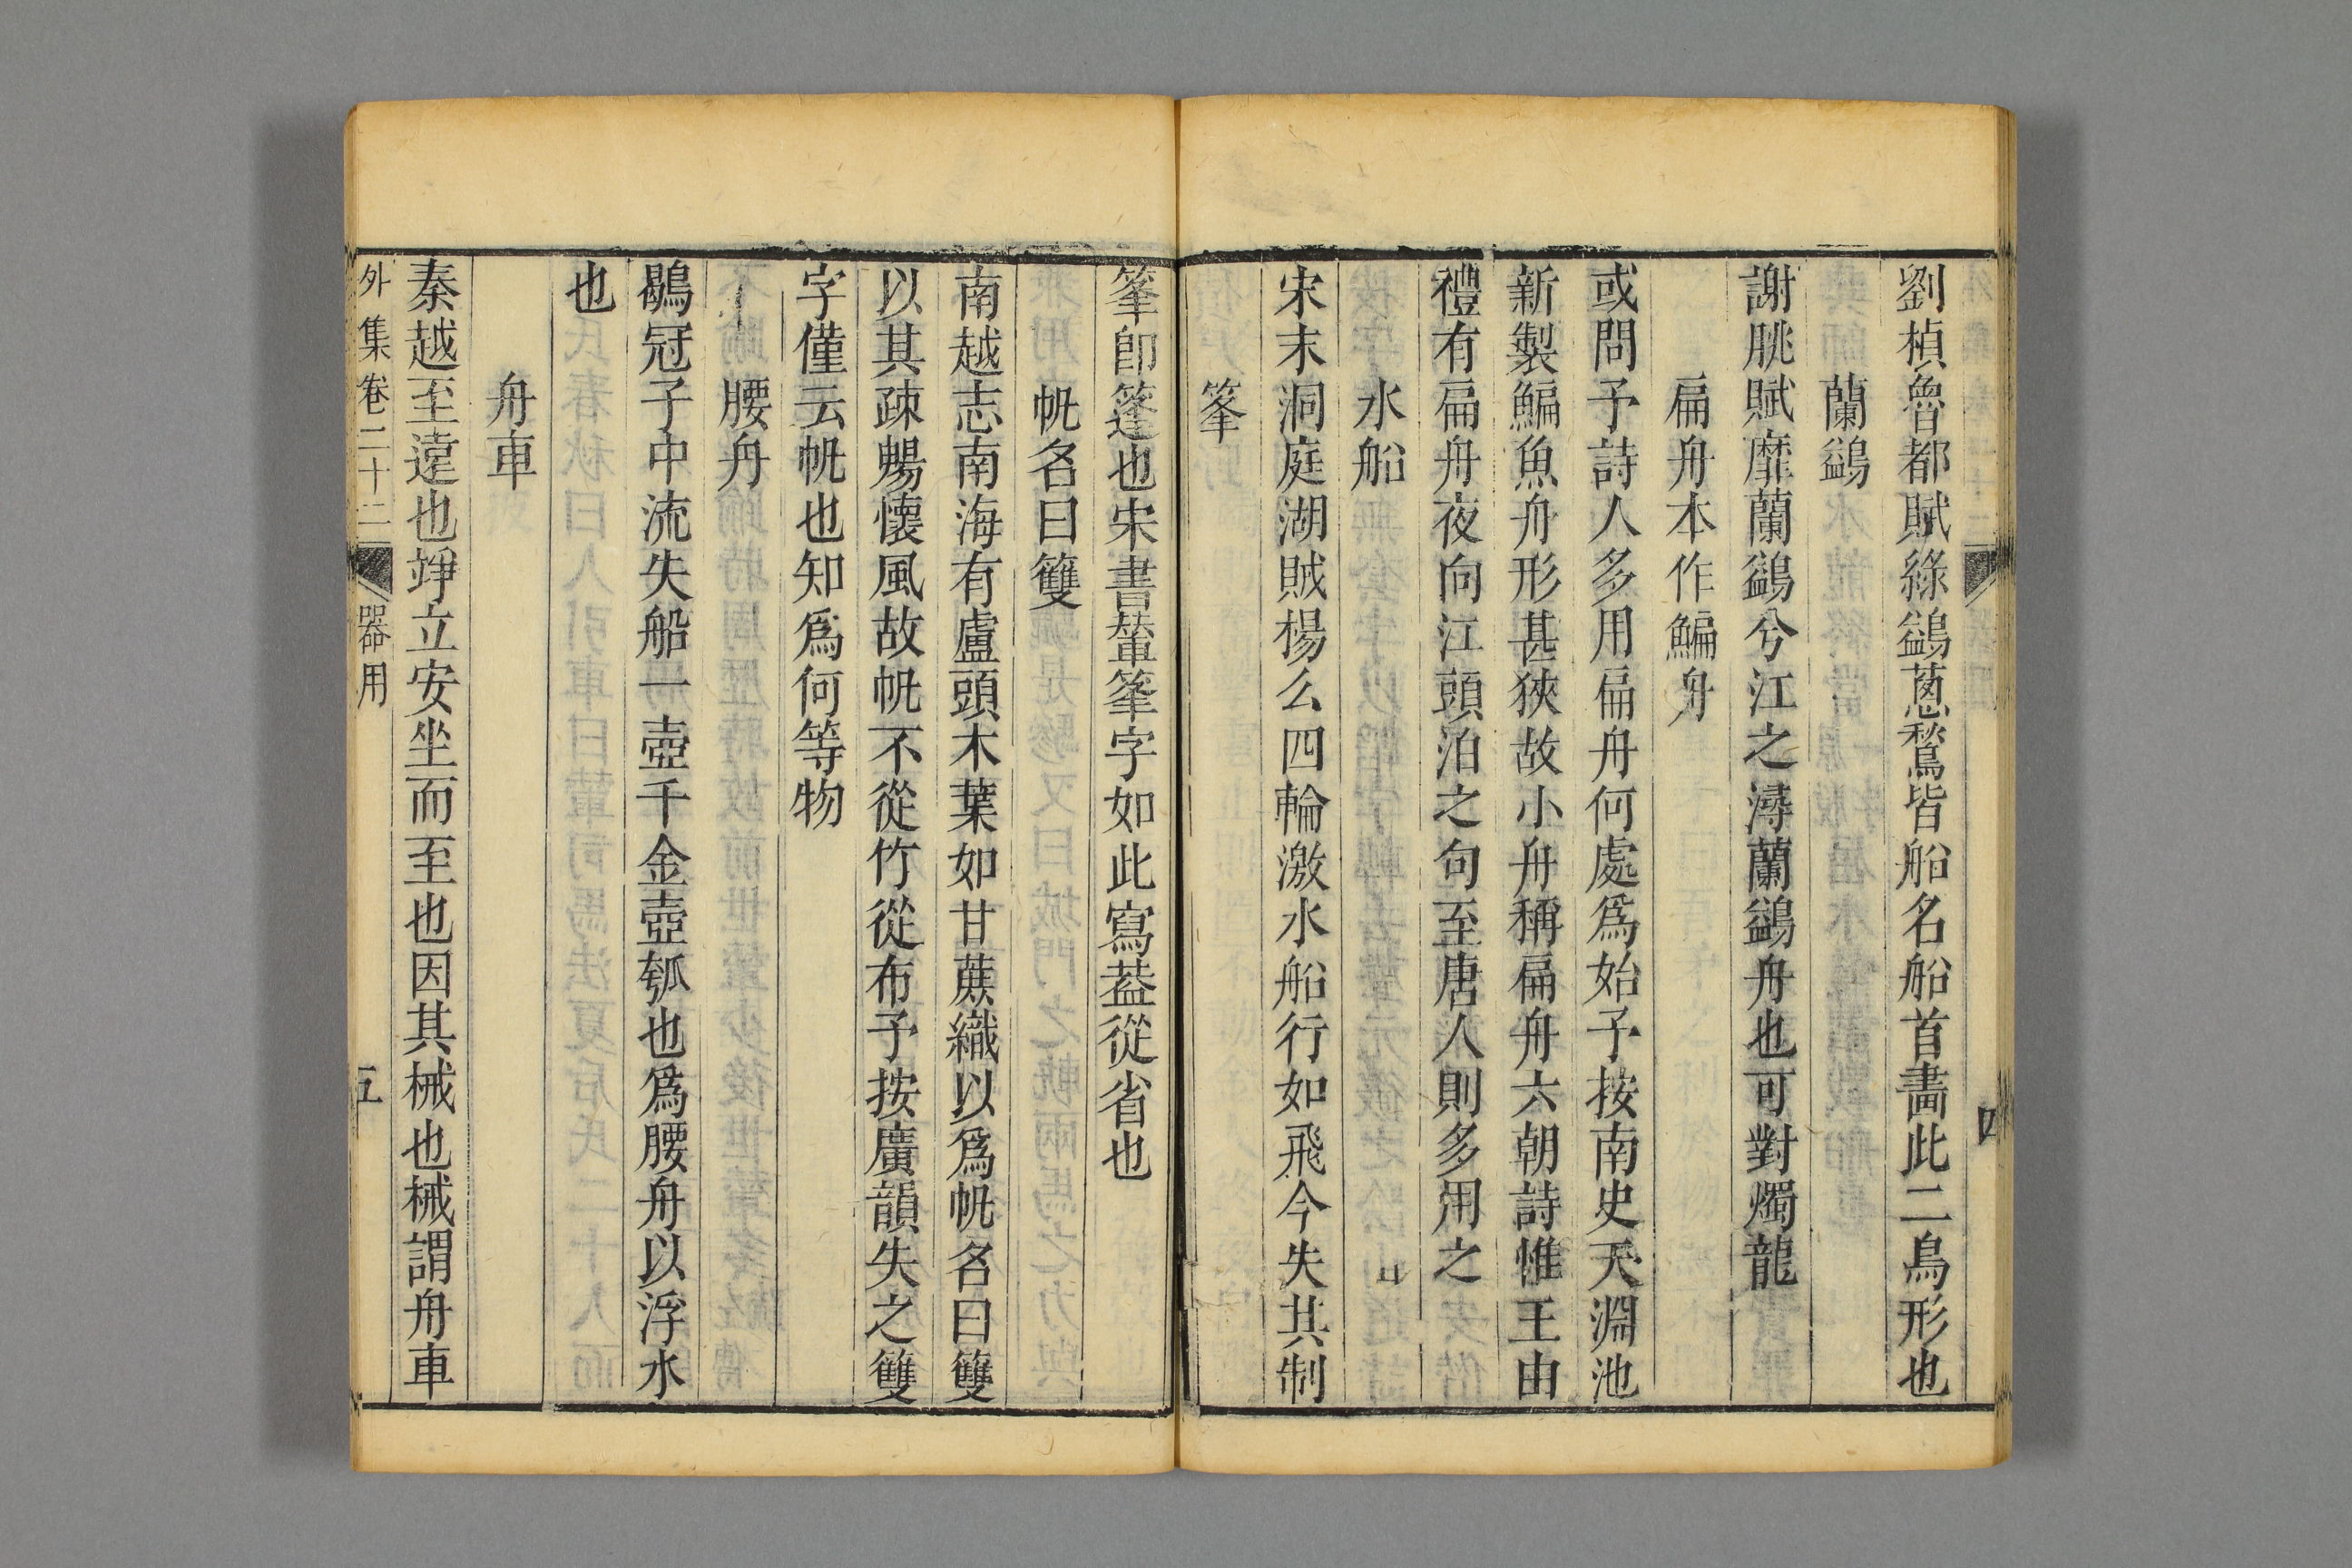 劉楨魯都賦綠鷁蔥鶖皆船名船首畵此二鳥形也
蘭鷁
謝朓賦靡蘭鷁兮江之潯蘭鷁舟也可對燭龍
扁舟本作鯿舟
或問予詩人多用扁舟何處爲始予按南史天淵池
新製鯿魚舟形甚狹故小舟稱扁舟六朝詩惟王由
禮有扁舟夜向江頭泊之句至唐人則多用之
水船
宋末洞庭湖賊楊么四輪激水船行如飛今失其制
篷
四
篷卽篷也宋書輦篷字如此寫葢從省也
帆名曰䉶
南越志南海有盧頭木葉如甘蔗織以爲帆名曰䉶
以其疎暢懷風故帆不從竹從布予按廣韻失之䉶
字僅云帆也知爲何等物
腰舟
鶡冠子中流失船一壺千金壺瓠也爲腰舟以浮水
也
舟車
秦越至遠也竫立安坐而至也因其械也械謂舟車
外集卷二十二 器用 五